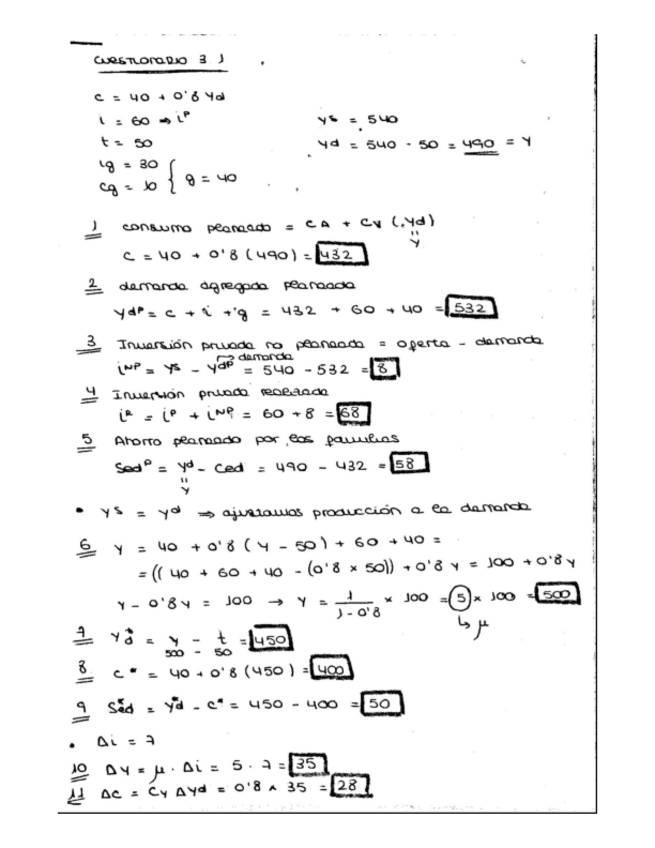 CUESTIONARIO 3.1
c = 40 + 0'8 Yd
i = 60 ⇒ iᵖ
yˢ = 540
t = 50
yd = 540 - 50 = 490 = Y
ig = 30
cg = 10 } g = 40
1 consumo planeado = CA + CY (.Yd)
"
Y
C = 40 + 0'8 (490) = 432
2 demanda agregada planeada
ydᵖ = c + i + g = 432 + 60 + 40 = 532
3 Inversión privada no planeada = oferta - demanda
→ demanda
iᴺᴾ = yˢ - ydᵖ = 540 - 532 = 8
4 Inversión privada realizada
iᴿ = iᵖ + iᴺᴾ = 60 + 8 = 68
5 Ahorro planeado por las familias
Sedᵖ = yd - Ced = 490 - 432 = 58
"
Y
• yˢ = yd ⇒ ajustamos producción a la demanda
6 Y = 40 + 0'8 (Y - 50) + 60 + 40 =
= (( 40 + 60 + 40 - (0'8 x 50)) + 0'8 Y = 100 + 0'8 Y
Y - 0'8 Y = 100 → Y = 1/(1 - 0'8) x 100 = 5 x 100 = 500
↳ μ
7 Yd* = Y - t = 450
500 - 50
8 c* = 40 + 0'8 (450) = 400
9 Sed* = Yd* - c* = 450 - 400 = 50
• Δi = 7
10 ΔY = μ · Δi = 5 · 7 = 35
11 ΔC = CY ΔYd = 0'8 x 35 = 28